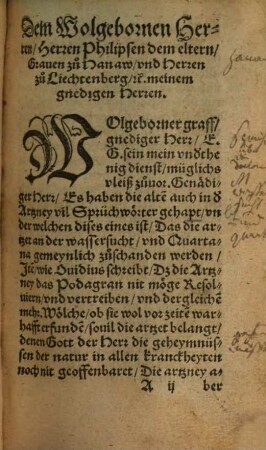 Dem Wolgebornen Her-
ren/ Herren Philipsen dem eltern/
Grauen zů Hanaw/vnd Herren
zů Liechtenberg/ꝛc. meinem
gnedigen Herren.
WOlgeborner graff/
gnediger Herr/ E.
G. sein mein vndthe
nig dienst/ müglichs
vleiß zůuor. Genädi
ger Herr/ Es haben die altē auch in d
Artzney vil Sprüchwörter gehapt/ vn
der welchen dises eines ist/ Das die ar
tzt an der wassersucht/ vnd Quarta-
na gemeynlich zůschanden werden/
Jtē/ wie Ouidius schreibt/ Dz die Artz
ney das Podagran nit möge Resol-
uiern/ vnd vertreiben/ vnd dergleichē
mehr. Wölche/ ob sie wol vor zeitē war
hafft erfundē/ souil die artzet belangt/
denen Gott der Herr die geheymnüs-
sen der natur in allen kranckheyten
noch nit geoffenbaret/ Die artzney a-
A ij ber